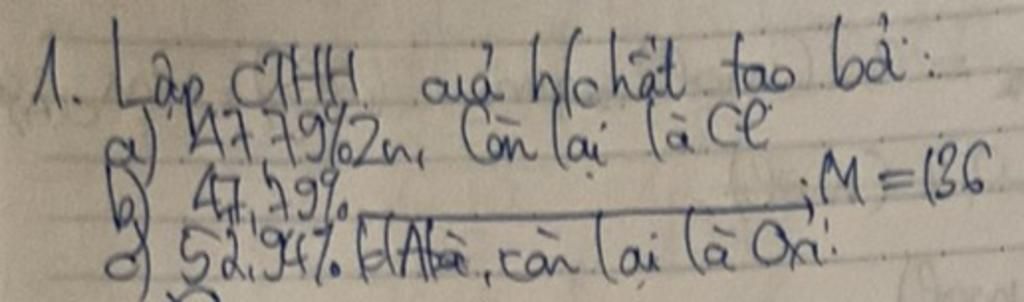 1. Lập CTHH của h/chất tạo bởi:
a) 47,79% Zn, Còn lại là Cl
b) 47,79% ; M = 136
c) 52,94% Al, còn lại là Oxi.